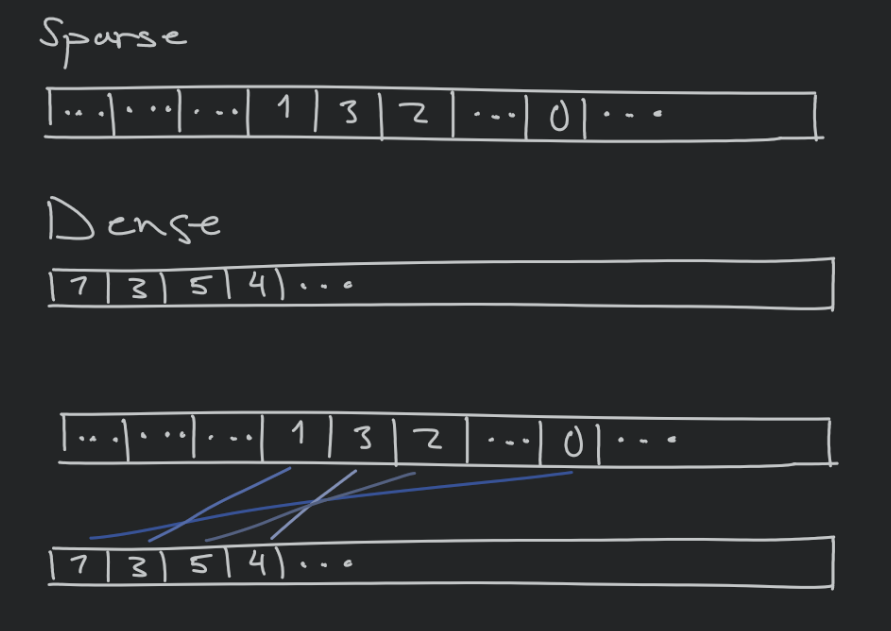 Sparse
... ... ... 1 3 2 ... 0 ...
Dense
7 3 5 4 ...
... ... ... 1 3 2 ... 0 ...
7 3 5 4 ...